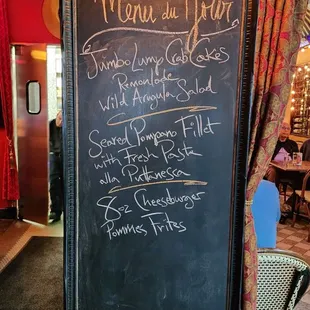 Menu du Jour
Jumbo Lump Crab Cakes
Remoulade
Wild Arugula Salad
Seared Pompano Fillet
with Fresh Pasta
alla Puttanesca
8oz Cheeseburger
Pommes Frites